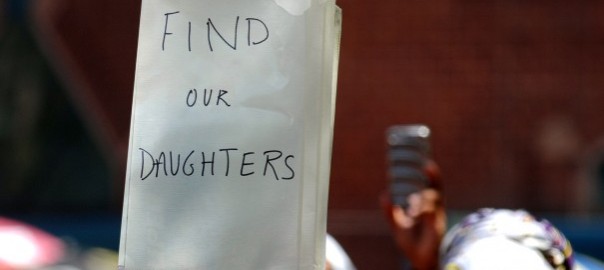 FIND
OUR
DAUGHTERS